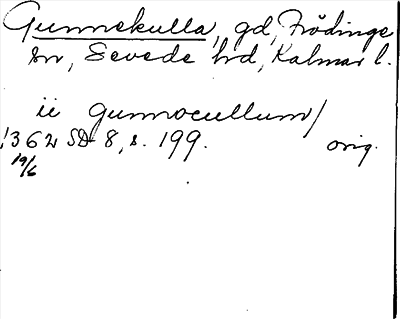 Gunnekulla, gd, Frödinge
sn, Sevede hd, Kalmar l.
ii gunnocullum/
1362 SD 8, s. 199. orig.
19/6